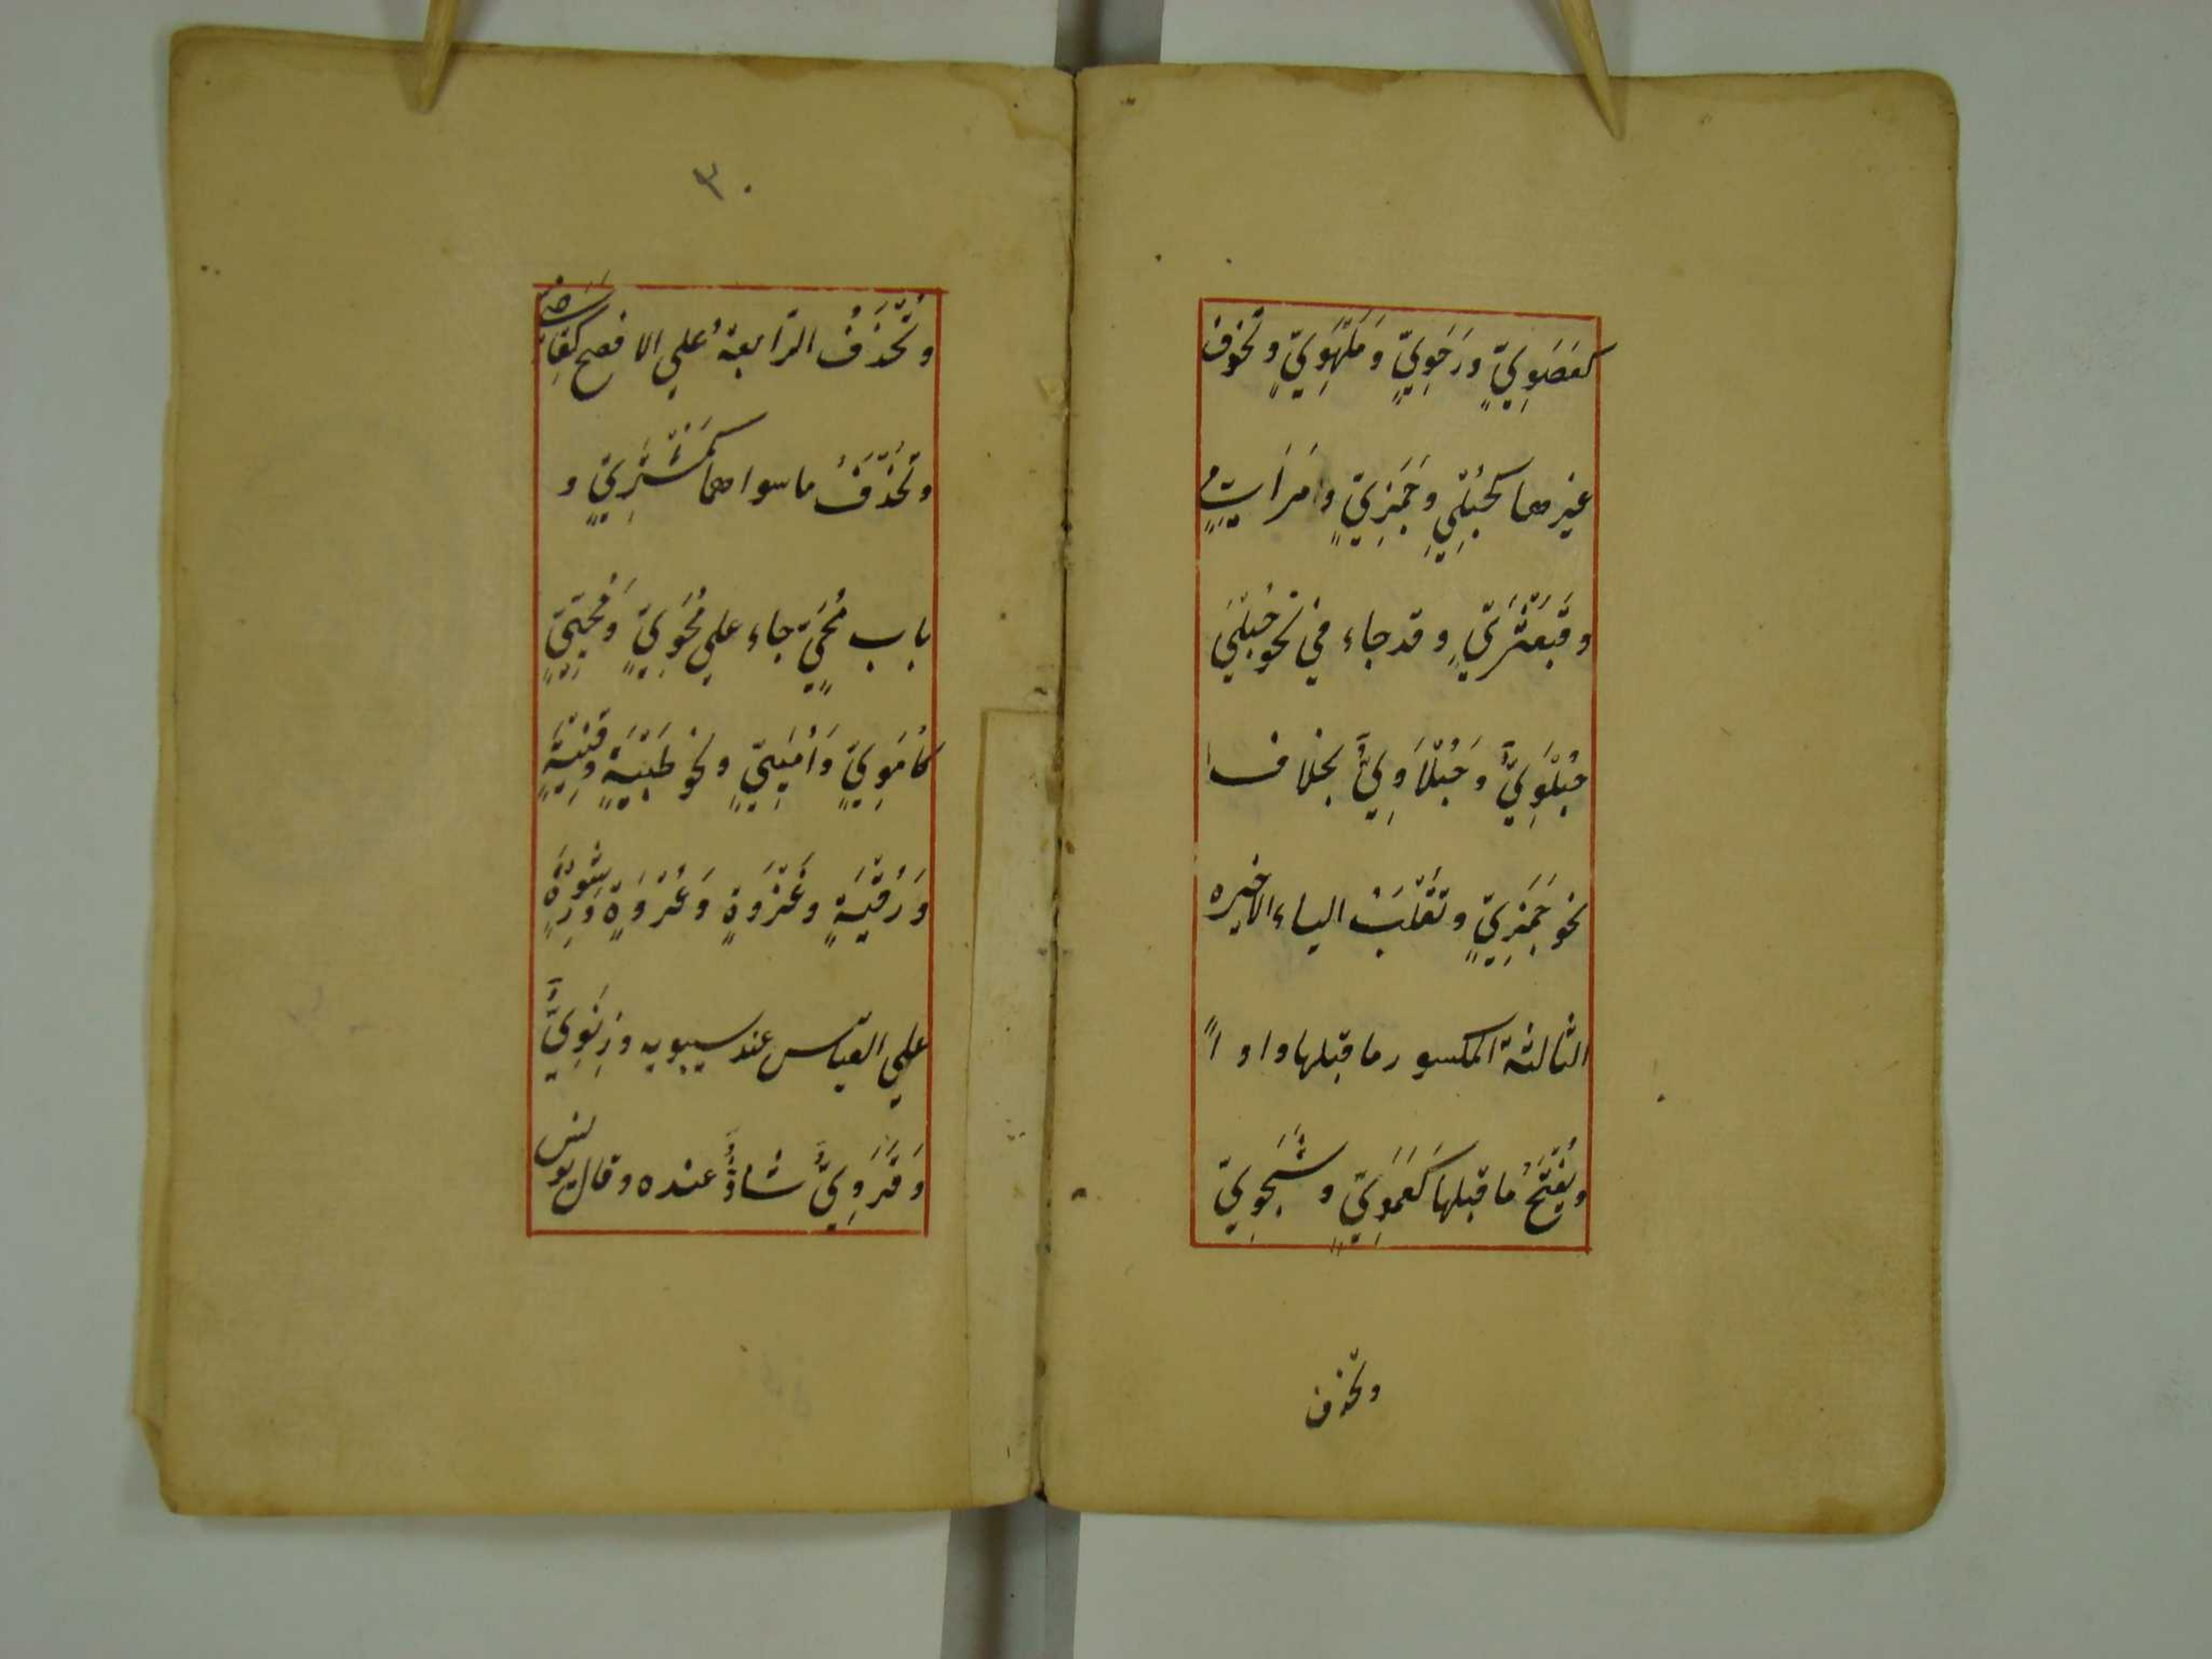 كعَصَوِيٍّ ورَحَوِيٍّ وَمَلْهَوِيٍّ وتحذف
غيرهما كحُبْلِيٍّ وَجَمَزِيٍّ ومُرَامِيٍّ
وقَبَعْثَرِيٍّ وقد جاء في نحو حُبْلَى
حُبْلَوِيٌّ وَحُبْلَاوِيٌّ بخلاف
نحو جَمَزِيٍّ وتُقْلَبُ الياء الاخيره
الثالثة المكسور ما قبلها واوا ً
ويُفْتَحُ ما قبلها كَعَمَوِيٍّ وشَجَوِيّ
وتحذف
٣٠
وتُحْذَفُ الرّابعةُ علي الافصح كقَاضِيّ
وتُحْذَفُ ما سواهما كمُشْتَرِيٍّ و
باب مُحَيٍّ جاء علي مُحَوِيٍّ وَمُحَيِّيٍّ
كأُمَوِيٍّ وَأُمَيِّيٍّ ونحو ظَبْيَةٍ وقِنْيَةٍ
وَرُقْيَةٍ وغَزْوَةٍ وَعُرْوَةٍ وَرِشْوَةٍ
علي القياس عند سيبويه وزِنَوِيٌّ
وَقَرَوِيٌّ شاذٌّ عنده وقال يونس